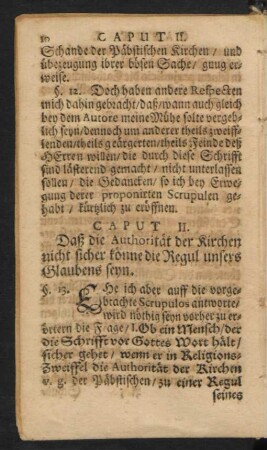 10 CAPUT II.
Schande der Päbstischen Kirchen / und
überzeugung ihrer bösen Sache / gnug er-
weise.
§. 12. Doch haben andere Respecten
mich dahin gebracht / daß / wann auch gleich
bey dem Autore meine Mühe solte vergeb-
lich seyn / dennoch um anderer theils zweiff-
lenden / theils geärgerten / theils Feinde deß
HErren willen / die durch diese Schrifft
sind lästerend gemacht / nicht unterlassen
sollen / die Gedancken / so ich bey Erwe-
gung derer proponirten Scrupulen ge-
habt / kürtzlich zu eröffnen.
CAPUT II.
Daß die Authorität der Kirchen
nicht sicher könne die Regul unsers
Glaubens seyn.
§. 13. EHe ich aber auff die vorge-
brachte Scrupulos antworte /
wird nöthig seyn vorher zu er-
örtern die Frage / I. Ob ein Mensch / der
die Schrifft vor Gottes Wort hält /
sicher gehet / wenn er in Religions-
Zweiffel die Authorität der Kirchen
v. g. der Päbstischen / zu einer Regul
seines